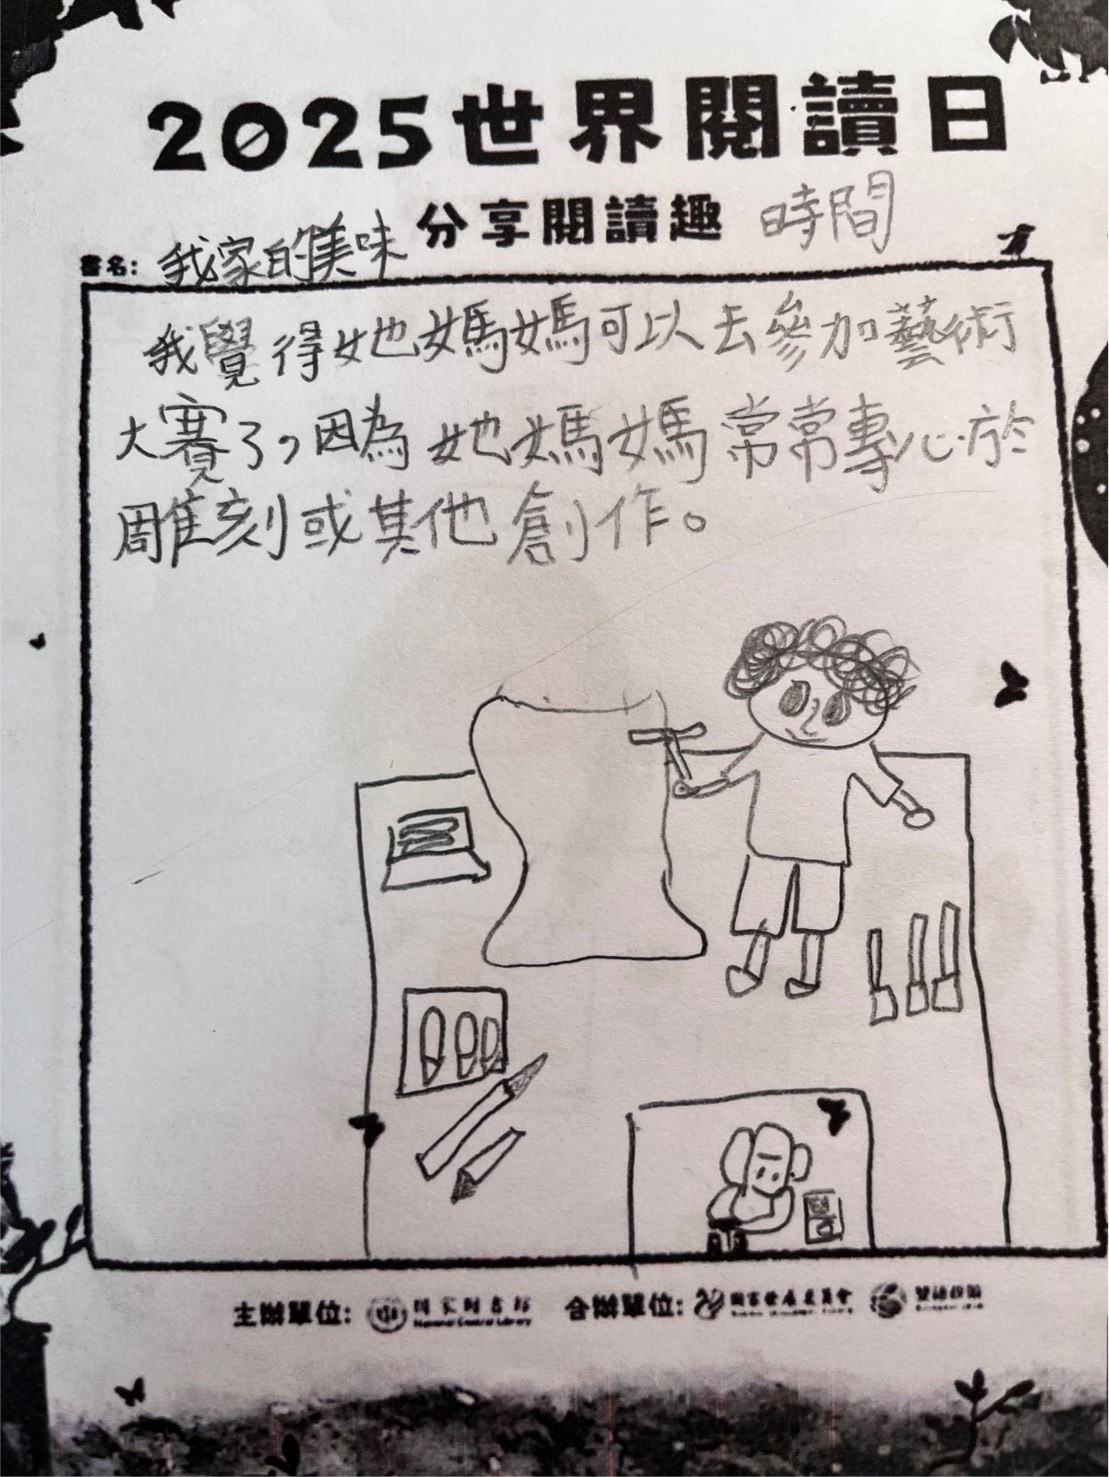 2025世界閱讀日
分享閱讀趣
書名: 我家的美味時間
我覺得她媽媽可以去參加藝術
大賽了,因為她媽媽常常專心於
雕刻或其他創作。
主辦單位: 國家圖書館 合辦單位: 國家發展委員會
National Central Library